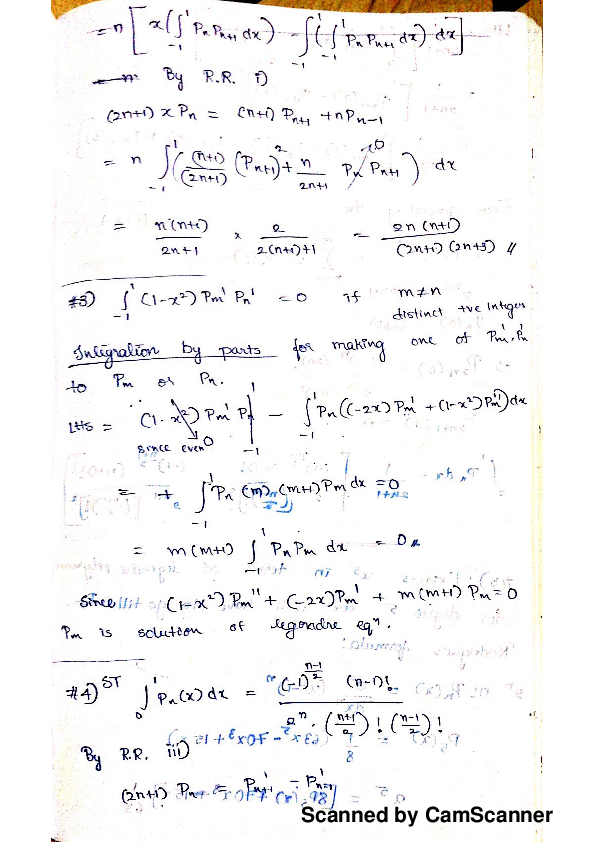 = n [ x ( ∫_{-1}^{1} Pn Pn+1 dx ) - ∫_{-1}^{1} ( ∫_{-1}^{1} Pn Pn+1 dx ) dx ]
By R.R. i)
(2n+1) x Pn = (n+1) Pn+1 + n Pn-1
= n ∫_{-1}^{1} ( (n+1)/(2n+1) (Pn+1)^2 + n/(2n+1) Pn Pn+1 ) dx
= n(n+1)/(2n+1) × 2/(2(n+1)+1) = 2n(n+1)/((2n+1)(2n+3)) //
#3) ∫_{-1}^{1} (1-x²) Pm' Pn' = 0 if m≠n
distinct +ve integer
Integration by parts for making one of Pm', Pn'
to Pm or Pn.
LHS = (1-x²) Pm' Pn |_{-1}^{1} - ∫_{-1}^{1} Pn ((-2x) Pm' + (1-x²) Pm'') dx
since even 0
= + ∫_{-1}^{1} Pn (m)(m+1) Pm dx = 0
= m(m+1) ∫_{-1}^{1} Pn Pm dx = 0 //
Since (1-x²) Pm'' + (-2x) Pm' + m(m+1) Pm = 0
Pm is solution of legendre eqⁿ.
#4) ST ∫_{0}^{1} Pn(x) dx = (-1)^{(n-1)/2} (n-1)! / (2ⁿ . ((n+1)/2)! ((n-1)/2)!)
By R.R. iii)
(2n+1) Pn = P'n+1 - P'n-1
Scanned by CamScanner